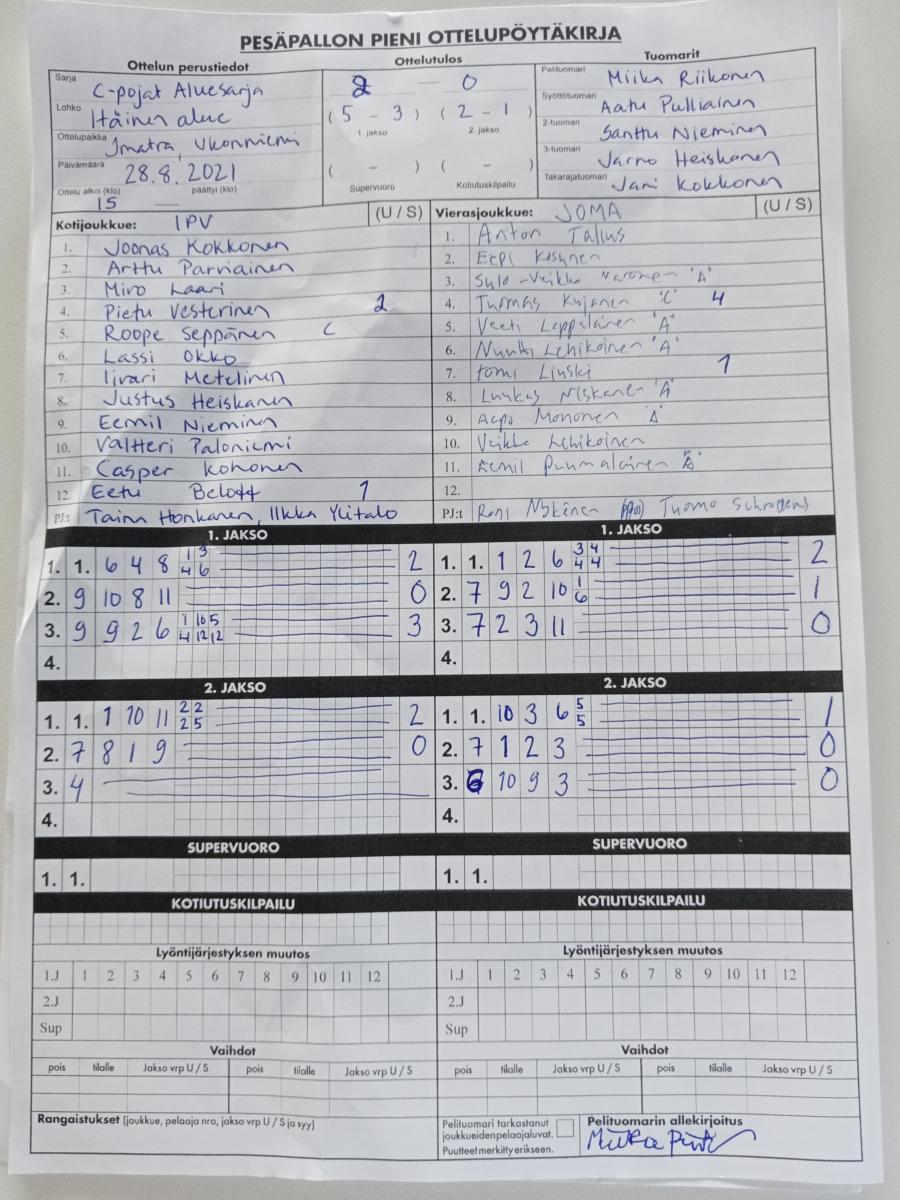 PESÄPALLON PIENI OTTELUPÖYTÄKIRJA
Ottelun perustiedot
Sarja C-pojat Aluesarja
Lohko Itäinen alue
Ottelupaikka Imatra, Ukonniemi
Päivämäärä 28.8.2021
Ottelu alkoi (klo) päättyi (klo)
15 —
Ottelutulos
2 — 0
( 5 - 3 ) ( 2 - 1 )
1. jakso 2. jakso
( - ) ( - )
Supervuoro Kotiutuskilpailu
Tuomarit
Pelituomari Miika Riikonen
Syöttötuomari Aatu Pulliainen
2-tuomari Santtu Nieminen
3-tuomari Jarno Heiskanen
Takarajatuomari Jani Kokkonen
Kotijoukkue: IPV (U / S)
1. Joonas Kokkonen
2. Arttu Parviainen
3. Miro Laari
4. Pietu Vesterinen 2
5. Roope Seppänen C
6. Lassi Okko
7. Iivari Metelinen
8. Justus Heiskanen
9. Eemil Nieminen
10. Valtteri Paloniemi
11. Casper Kohonen
12. Eetu Beloff 1
PJ:t Taina Honkanen, Ilkka Ylitalo
Vierasjoukkue: JOMA (U / S)
1. Anton Tallus
2. Eepi Kosunen
3. Sulo-Veikko 'A'
4. Tuomas Kujanen 'C' 4
5. Veeti Leppälainen 'A'
6. Lehikoinen 'A'
7. Tomi Linski 1
8. Niskanen 'A'
9. Aapo Mononen 'A'
10. Veikko Lehikoinen
11. Eemil Puumalainen 'A'
12.
PJ:t Roni Nykänen Tuomo
1. JAKSO
1. 1. 6 4 8 1 3 2
4 6
2. 9 10 8 11 0
3. 9 9 2 6 1 10 5 3
4 12 12
4.
1. JAKSO
1. 1. 1 2 6 3 4 2
4 4
2. 7 9 2 10 1 1
6
3. 7 2 3 11 0
4.
2. JAKSO
1. 1. 1 10 11 2 2 2
2 5
2. 7 8 1 9 0
3. 4
4.
2. JAKSO
1. 1. 10 3 6 5 1
5
2. 7 1 2 3 0
3. 6 10 9 3 0
4.
SUPERVUORO
1. 1.
SUPERVUORO
1. 1.
KOTIUTUSKILPAILU
KOTIUTUSKILPAILU
Lyöntijärjestyksen muutos
1.J 1 2 3 4 5 6 7 8 9 10 11 12
2.J
Sup
Lyöntijärjestyksen muutos
1.J 1 2 3 4 5 6 7 8 9 10 11 12
2.J
Sup
Vaihdot
pois tilalle Jakso vrp U / S pois tilalle Jakso vrp U / S
Vaihdot
pois tilalle Jakso vrp U / S pois tilalle Jakso vrp U / S
Rangaistukset (joukkue, pelaaja nro, jakso vrp U / S ja syy)
Pelituomari tarkastanut
joukkueidenpelaajaluvat.
Puutteet merkitty erikseen.
Pelituomarin allekirjoitus